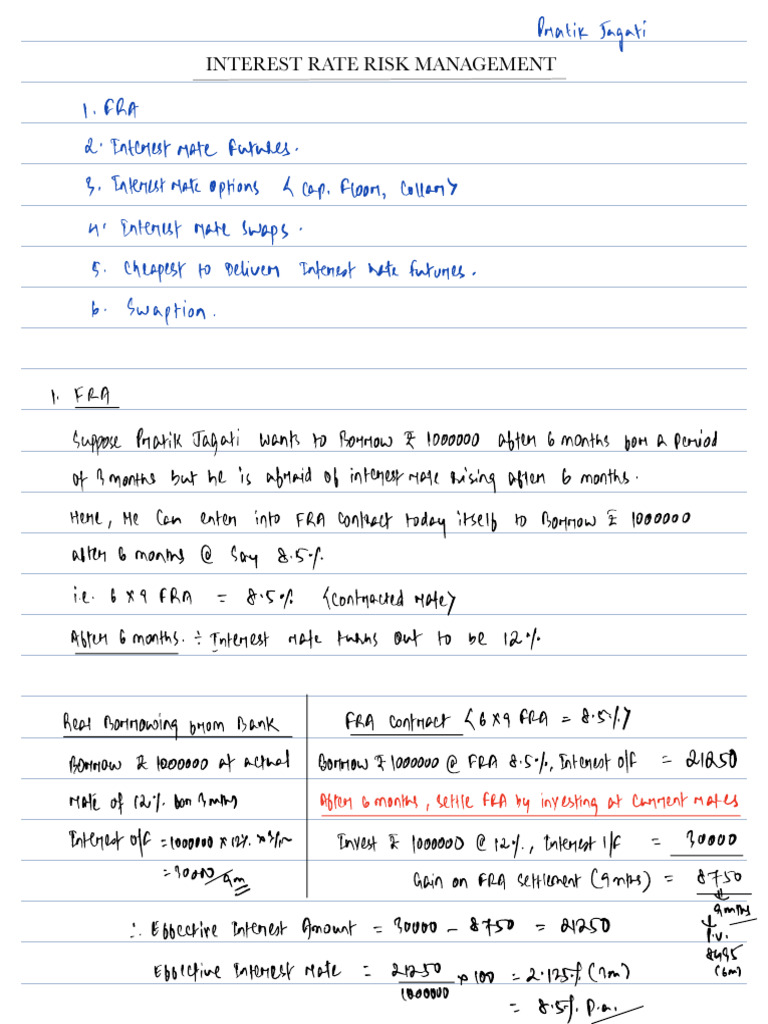 Pratik Jagati
INTEREST RATE RISK MANAGEMENT
1. FRA
2. Interest rate futures.
3. Interest rate options { Cap, Floor, Collar }
4. Interest rate swaps.
5. Cheapest to Deliver Interest rate futures.
6. Swaption.
1. FRA
Suppose Pratik Jagati wants to Borrow ₹ 1000000 after 6 months for a period
of 3 months but he is afraid of interest rate rising after 6 months.
Here, He can enter into FRA contract today itself to Borrow ₹ 1000000
after 6 months @ Say 8.5%.
i.e. 6 x 9 FRA = 8.5% {Contracted rate}
After 6 months. ÷ Interest rate turns out to be 12%
Real Borrowing from Bank
Borrow ₹ 1000000 at actual
rate of 12% for 3 mths
Interest o/f = 1000000 x 12% x 3/12
= 30000
FRA Contract { 6 x 9 FRA = 8.5% }
Borrow ₹ 1000000 @ FRA 8.5%, Interest o/f = 21250
After 6 months, settle FRA by investing at Current rates
Invest ₹ 1000000 @ 12%, Interest I/f = 30000
Gain on FRA settlement (9mths) = 8750
9mths
P.V.
8495
(6m)
∴ Effective Interest Amount = 30000 - 8750 = 21250
Effective Interest Rate = 21250/1000000 x 100 = 2.125% (3m)
= 8.5% p.a.